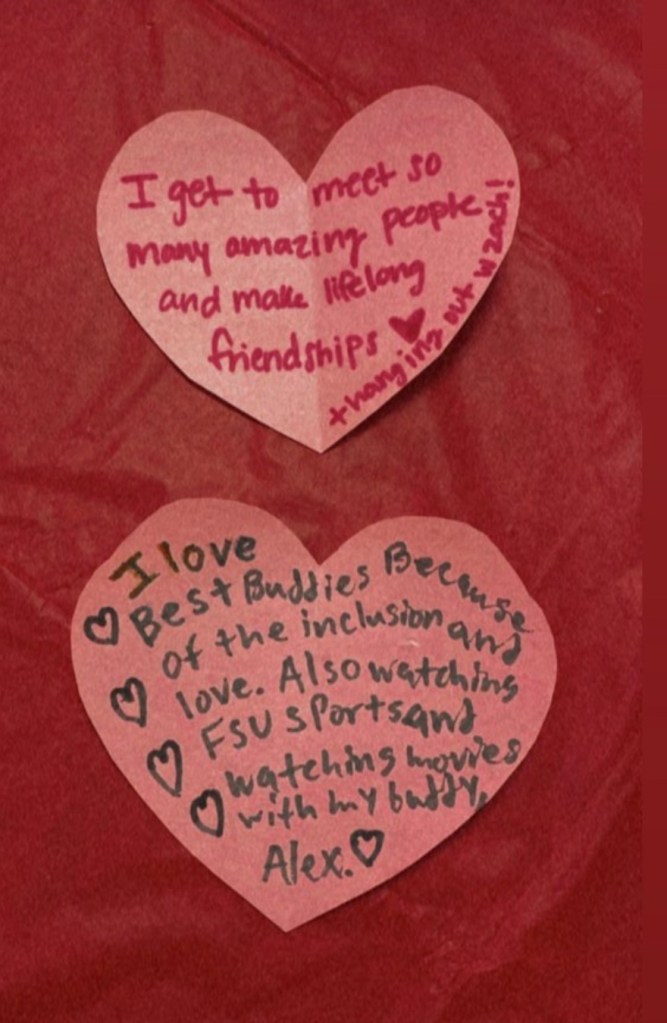 I get to meet so
many amazing people
and make lifelong
friendships ♥
+ hanging out w zach!
I love
♡ Best Buddies Because
of the inclusion and
♡ love. Also watching
FSU sports and
♡ watching movies
♡ with my buddy,
Alex. ♡